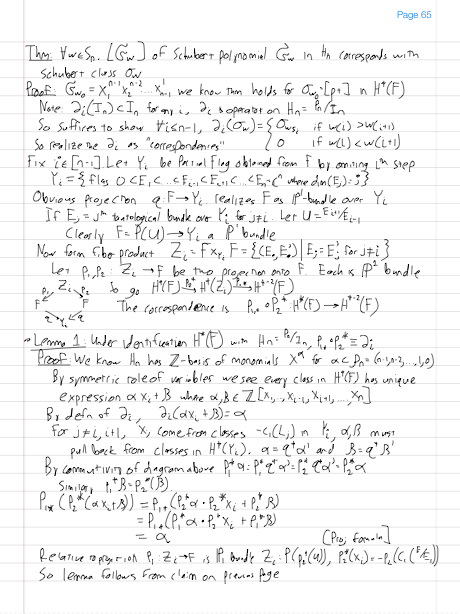 Page 65
Thm: ∀w∈Sn. [𝔖w] of Schubert polynomial 𝔖w in Hn corresponds with
Schubert class σw
Proof: 𝔖w0 = x1^{n-1} x2^{n-2} ... x_{n-1}^1 we know thm holds for σw0=[pt] in H*(F)
Note: ∂i(In) ⊂ In for any i, ∂i is operator on Hn = Pn/In
So suffices to show ∀i≤n-1, ∂i(σw) = { σwsi if w(i) > w(i+1)
So realize the ∂i as "correspondences" 0 if w(i) < w(i+1)
Fix i∈[n-1]. Let Yi be Partial flag obtained from F by omitting ith step
Yi = {flags 0⊂E1⊂...⊂Ei-1⊂Ei+1⊂...⊂En=ℂ^n where dim(Ej)=j}
Obvious projection q: F→Yi realizes F as ℙ' bundle over Yi
If Ej = jth tautological bundle over Yi for j≠i. Let U = Ei+1/Ei-1
Clearly F=ℙ(U)→Yi a ℙ' bundle
Now form fiber product Zi = F×Yi F = {(E., E.') | Ej = Ej' for j≠i}
Let p1, p2: Zi → F be two projection onto F. Each is ℙ^1 bundle
p1 Zi p2 So go H*(F) →p2* H*(Zi) →p1* H*-2(F)
F F The correspondence is p1*∘p2*: H*(F) → H*-2(F)
q Yi q
→ Lemma 1: Under identification H*(F) with Hn = Pn/In, p1*∘p2* = ∂i
Proof: We know Hn has ℤ-basis of monomials x^α for α⊂ρn = (n-1, n-2, ..., 1, 0)
By symmetric role of variables we see every class in H*(F) has unique
expression αxi + β where α,β∈ℤ[x1, .., xi-1, xi+1, ..., xn]
By defn of ∂i, ∂i(αxi + β) = α
For j≠i, i+1, xj come from classes -c1(Lj) in Yi, α,β must
pull back from classes in H*(Yi). α = q*α' and β = q*β'
By commutivity of diagram above p1*α = p1*q*α' = p2*q*α' = p2*α
Similarly p1*β = p2*(β)
p1*(p2*(αxi + β)) = p1*(p2*α · p2*xi + p2*β)
= p1*(p1*α · p2*xi + p1*β)
= α [Proj formula]
Relative to projection p1: Zi→F is ℙ' bundle Zi = ℙ(p1*(U)), p2*(xi) = -p2*(c1(Ei/Ei-1))
So lemma follows from claim on previous page